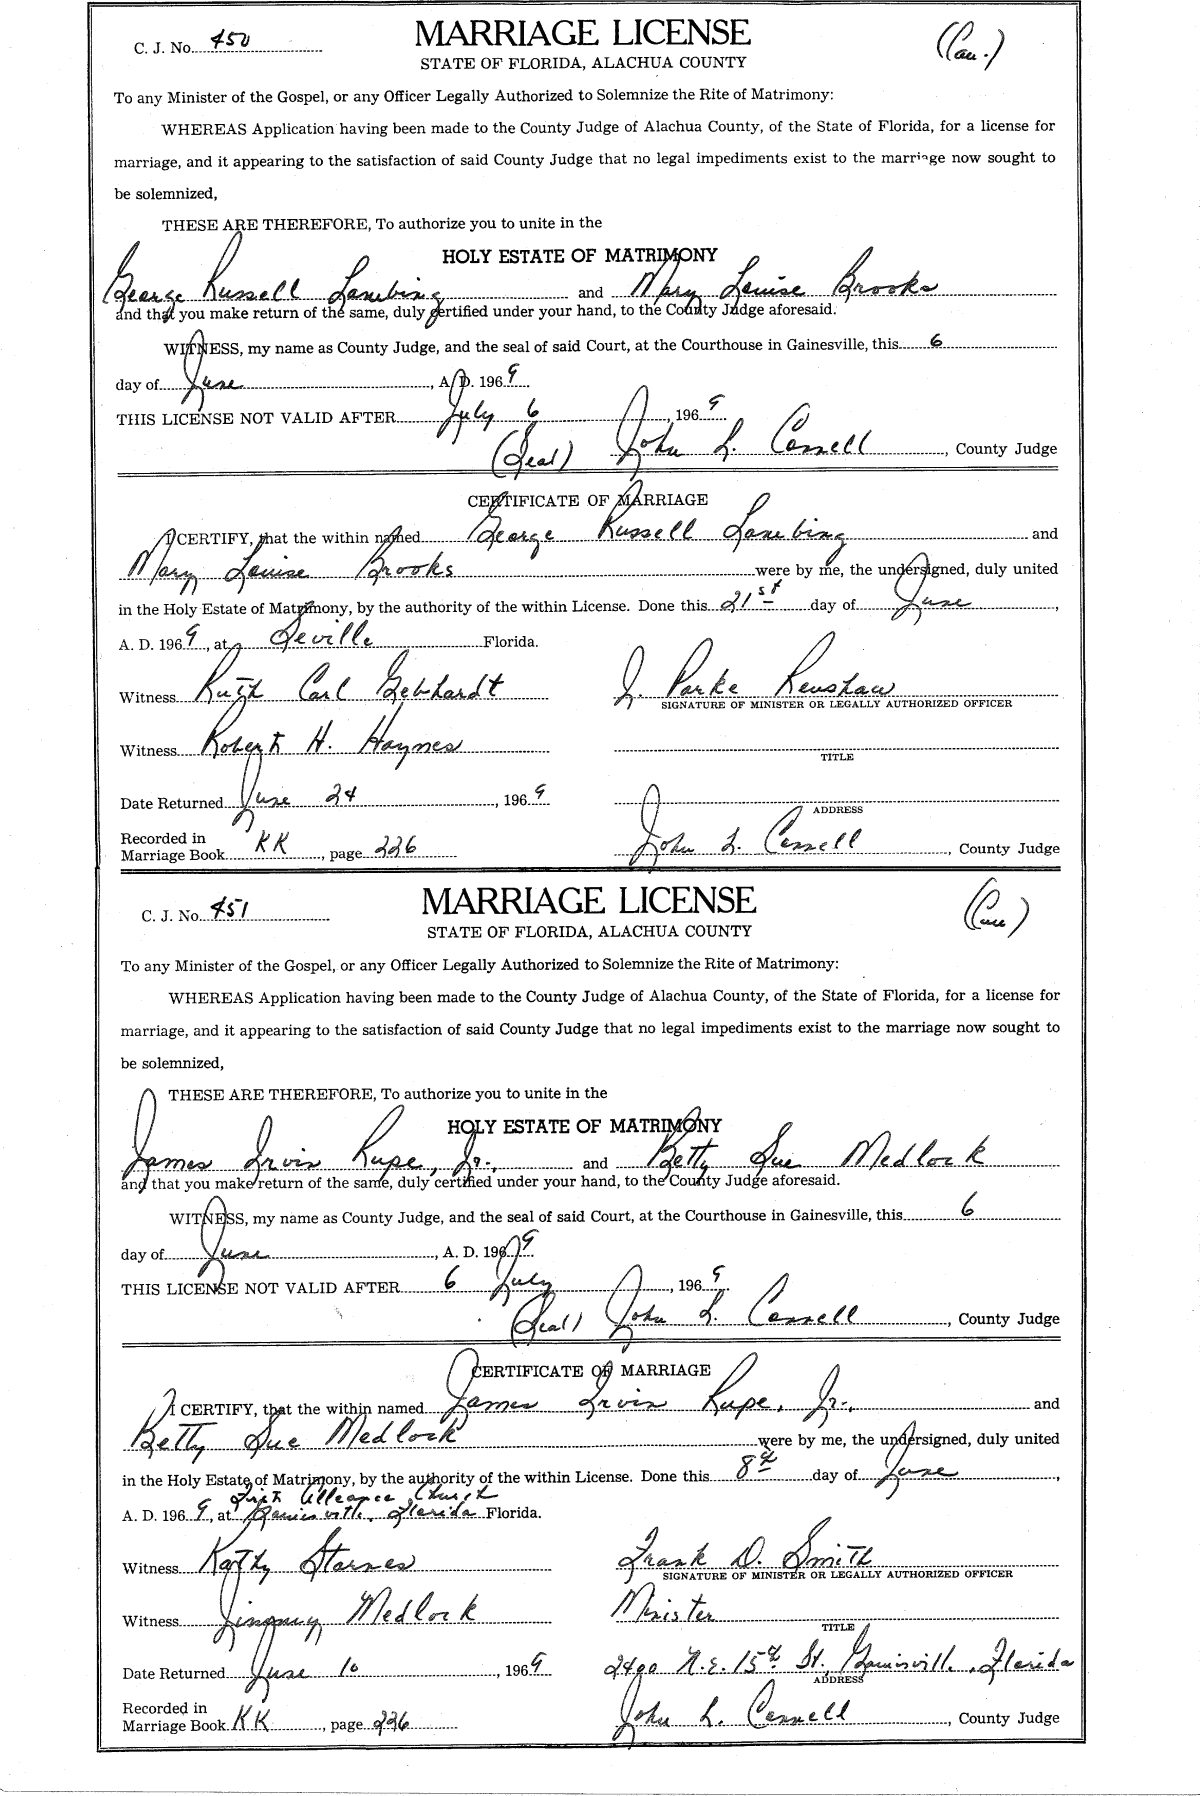 C. J. No. 450
MARRIAGE LICENSE
(Cau.)
STATE OF FLORIDA, ALACHUA COUNTY
To any Minister of the Gospel, or any Officer Legally Authorized to Solemnize the Rite of Matrimony:
WHEREAS Application having been made to the County Judge of Alachua County, of the State of Florida, for a license for
marriage, and it appearing to the satisfaction of said County Judge that no legal impediments exist to the marriage now sought to
be solemnized,
THESE ARE THEREFORE, To authorize you to unite in the
HOLY ESTATE OF MATRIMONY
George Russell Lansbing and Mary Louise Brooks
and that you make return of the same, duly certified under your hand, to the County Judge aforesaid.
WITNESS, my name as County Judge, and the seal of said Court, at the Courthouse in Gainesville, this 6
day of June, A. D. 1969.
THIS LICENSE NOT VALID AFTER July 6, 1969
(Seal) John L. Connell, County Judge
CERTIFICATE OF MARRIAGE
I CERTIFY, that the within named George Russell Lansbing and
Mary Louise Brooks were by me, the undersigned, duly united
in the Holy Estate of Matrimony, by the authority of the within License. Done this 21st day of June,
A. D. 1969, at Seville Florida.
Witness Ruth Carl Gebhardt
J. Parke Renshaw
SIGNATURE OF MINISTER OR LEGALLY AUTHORIZED OFFICER
Witness Robert H. Haynes
TITLE
Date Returned June 24, 1969
ADDRESS
Recorded in
Marriage Book KK, page 226
John L. Connell, County Judge
C. J. No. 451
MARRIAGE LICENSE
(Cau)
STATE OF FLORIDA, ALACHUA COUNTY
To any Minister of the Gospel, or any Officer Legally Authorized to Solemnize the Rite of Matrimony:
WHEREAS Application having been made to the County Judge of Alachua County, of the State of Florida, for a license for
marriage, and it appearing to the satisfaction of said County Judge that no legal impediments exist to the marriage now sought to
be solemnized,
THESE ARE THEREFORE, To authorize you to unite in the
HOLY ESTATE OF MATRIMONY
James Irvin Rupe, Jr., and Betty Sue Medlock
and that you make return of the same, duly certified under your hand, to the County Judge aforesaid.
WITNESS, my name as County Judge, and the seal of said Court, at the Courthouse in Gainesville, this 6
day of June, A. D. 1969.
THIS LICENSE NOT VALID AFTER 6 July, 1969.
(Seal) John L. Connell, County Judge
CERTIFICATE OF MARRIAGE
I CERTIFY, that the within named James Irvin Rupe, Jr., and
Betty Sue Medlock were by me, the undersigned, duly united
in the Holy Estate of Matrimony, by the authority of the within License. Done this 8th day of June,
First Alleance Church
A. D. 1969, at Gainesville, Florida Florida.
Witness Kathy Starnes
Frank D. Smith
SIGNATURE OF MINISTER OR LEGALLY AUTHORIZED OFFICER
Witness Jimmy Medlock
Minister
TITLE
Date Returned June 10, 1969
2400 N.E. 15th St., Gainesville, Florida
ADDRESS
Recorded in
Marriage Book KK, page 226
John L. Connell, County Judge